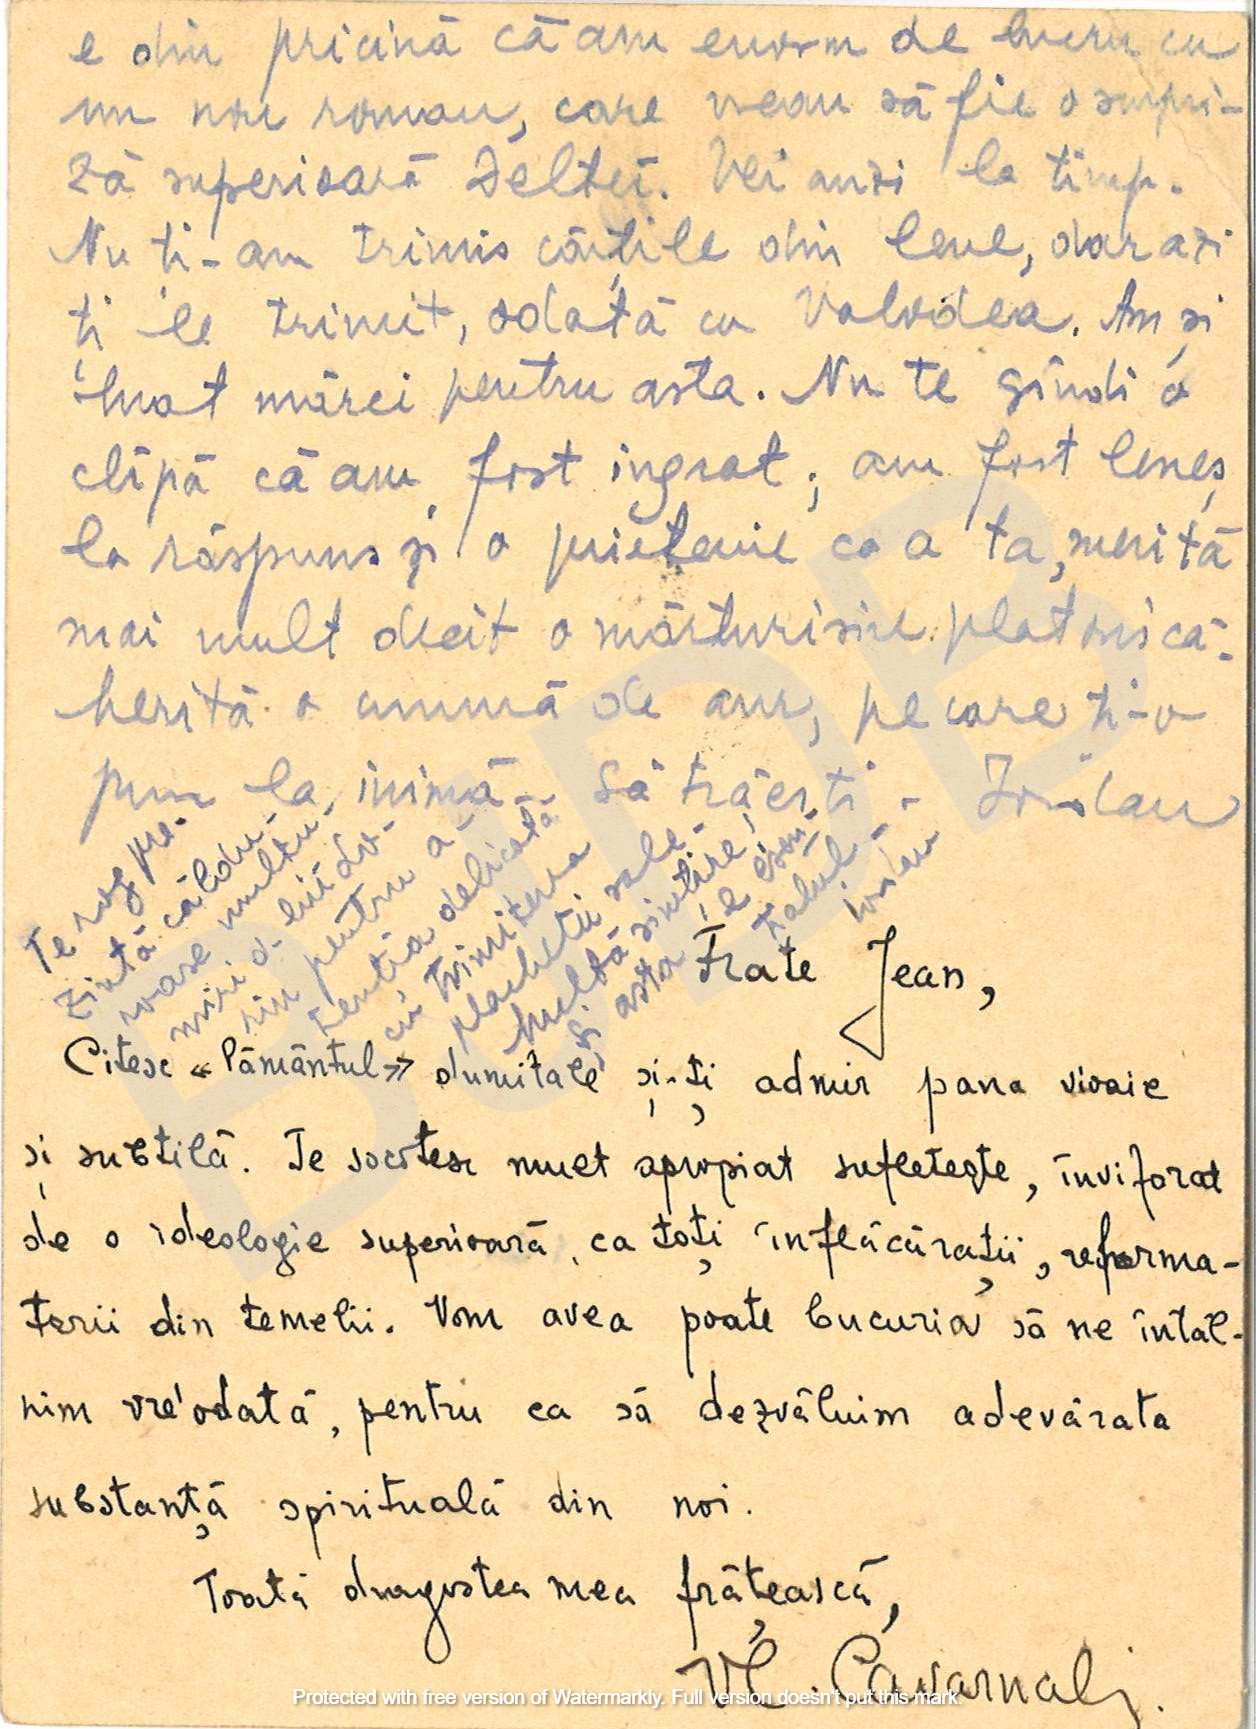 e din pricină că am enorm de lucru cu
un nou roman, care vreau să fie o surpri-
ză superioară Deltei. Vei auzi la timp.
Nu ți-am trimis cărțile din lene, dar azi
ți le trimit, odată cu Valvdea. Am și
luat mărci pentru asta. Nu te gîndi o
clipă că am fost ingrat; am fost leneș
la răspuns și o prietenie ca a ta, merită
mai mult decît o mărturisire platonică.
Merită o cunună de aur, pe care ți-o
pun la inimă. Să trăești - Iordan
Te rog pre-
zintă căldu-
roase mulțu-
miri d-lui Do-
rin pentru a-
tenția delicată
cu trimiterea
plachetii sale.
Multă simțire,
și asta e esen-
țialul -
Iordan
Frate Jean,
Citesc «Pământul» dumitale și-ți admir pana vioaie
și subtilă. Te socotesc mult apropiat sufletește, înviforat
de o ideologie superioară, ca toți înflăcărații, reforma-
torii din temelii. Vom avea poate bucuria să ne întâl-
nim vre'odată, pentru ca să dezvăluim adevărata
substanță spirituală din noi.
Toată dragostea mea frățească,
Vl. Cavarnali.
Protected with free version of Watermarkly. Full version doesn't put this mark.
BJDB